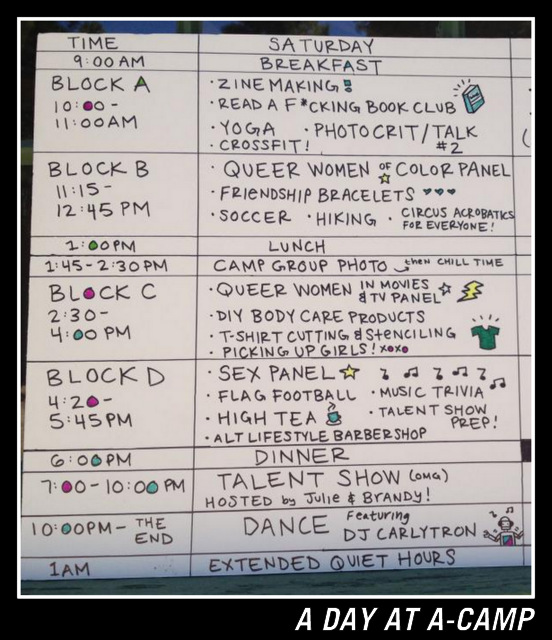 TIME SATURDAY
9:00 AM BREAKFAST
BLOCK A
10:00-
11:00AM
· ZINE MAKING!
· READ A F*CKING BOOK CLUB
· YOGA · PHOTO CRIT/TALK #2
· CROSSFIT!
BLOCK B
11:15-
12:45 PM
· QUEER WOMEN OF COLOR PANEL
· FRIENDSHIP BRACELETS
· SOCCER · HIKING · CIRCUS ACROBATICS FOR EVERYONE!
1:00PM LUNCH
1:45-2:30PM CAMP GROUP PHOTO then CHILL TIME
BLOCK C
2:30-
4:00 PM
· QUEER WOMEN IN MOVIES & TV PANEL
· DIY BODY CARE PRODUCTS
· T-SHIRT CUTTING & STENCILING
· PICKING UP GIRLS! xoxo
BLOCK D
4:20-
5:45PM
· SEX PANEL
· FLAG FOOTBALL · MUSIC TRIVIA
· HIGH TEA · TALENT SHOW PREP!
· ALT LIFESTYLE BARBERSHOP
6:00PM DINNER
7:00-10:00PM TALENT SHOW (OMG)
HOSTED by Julie & BRANDY!
10:00PM- THE END
DANCE Featuring DJ CARLYTRON
1AM EXTENDED QUIET HOURS
A DAY AT A-CAMP